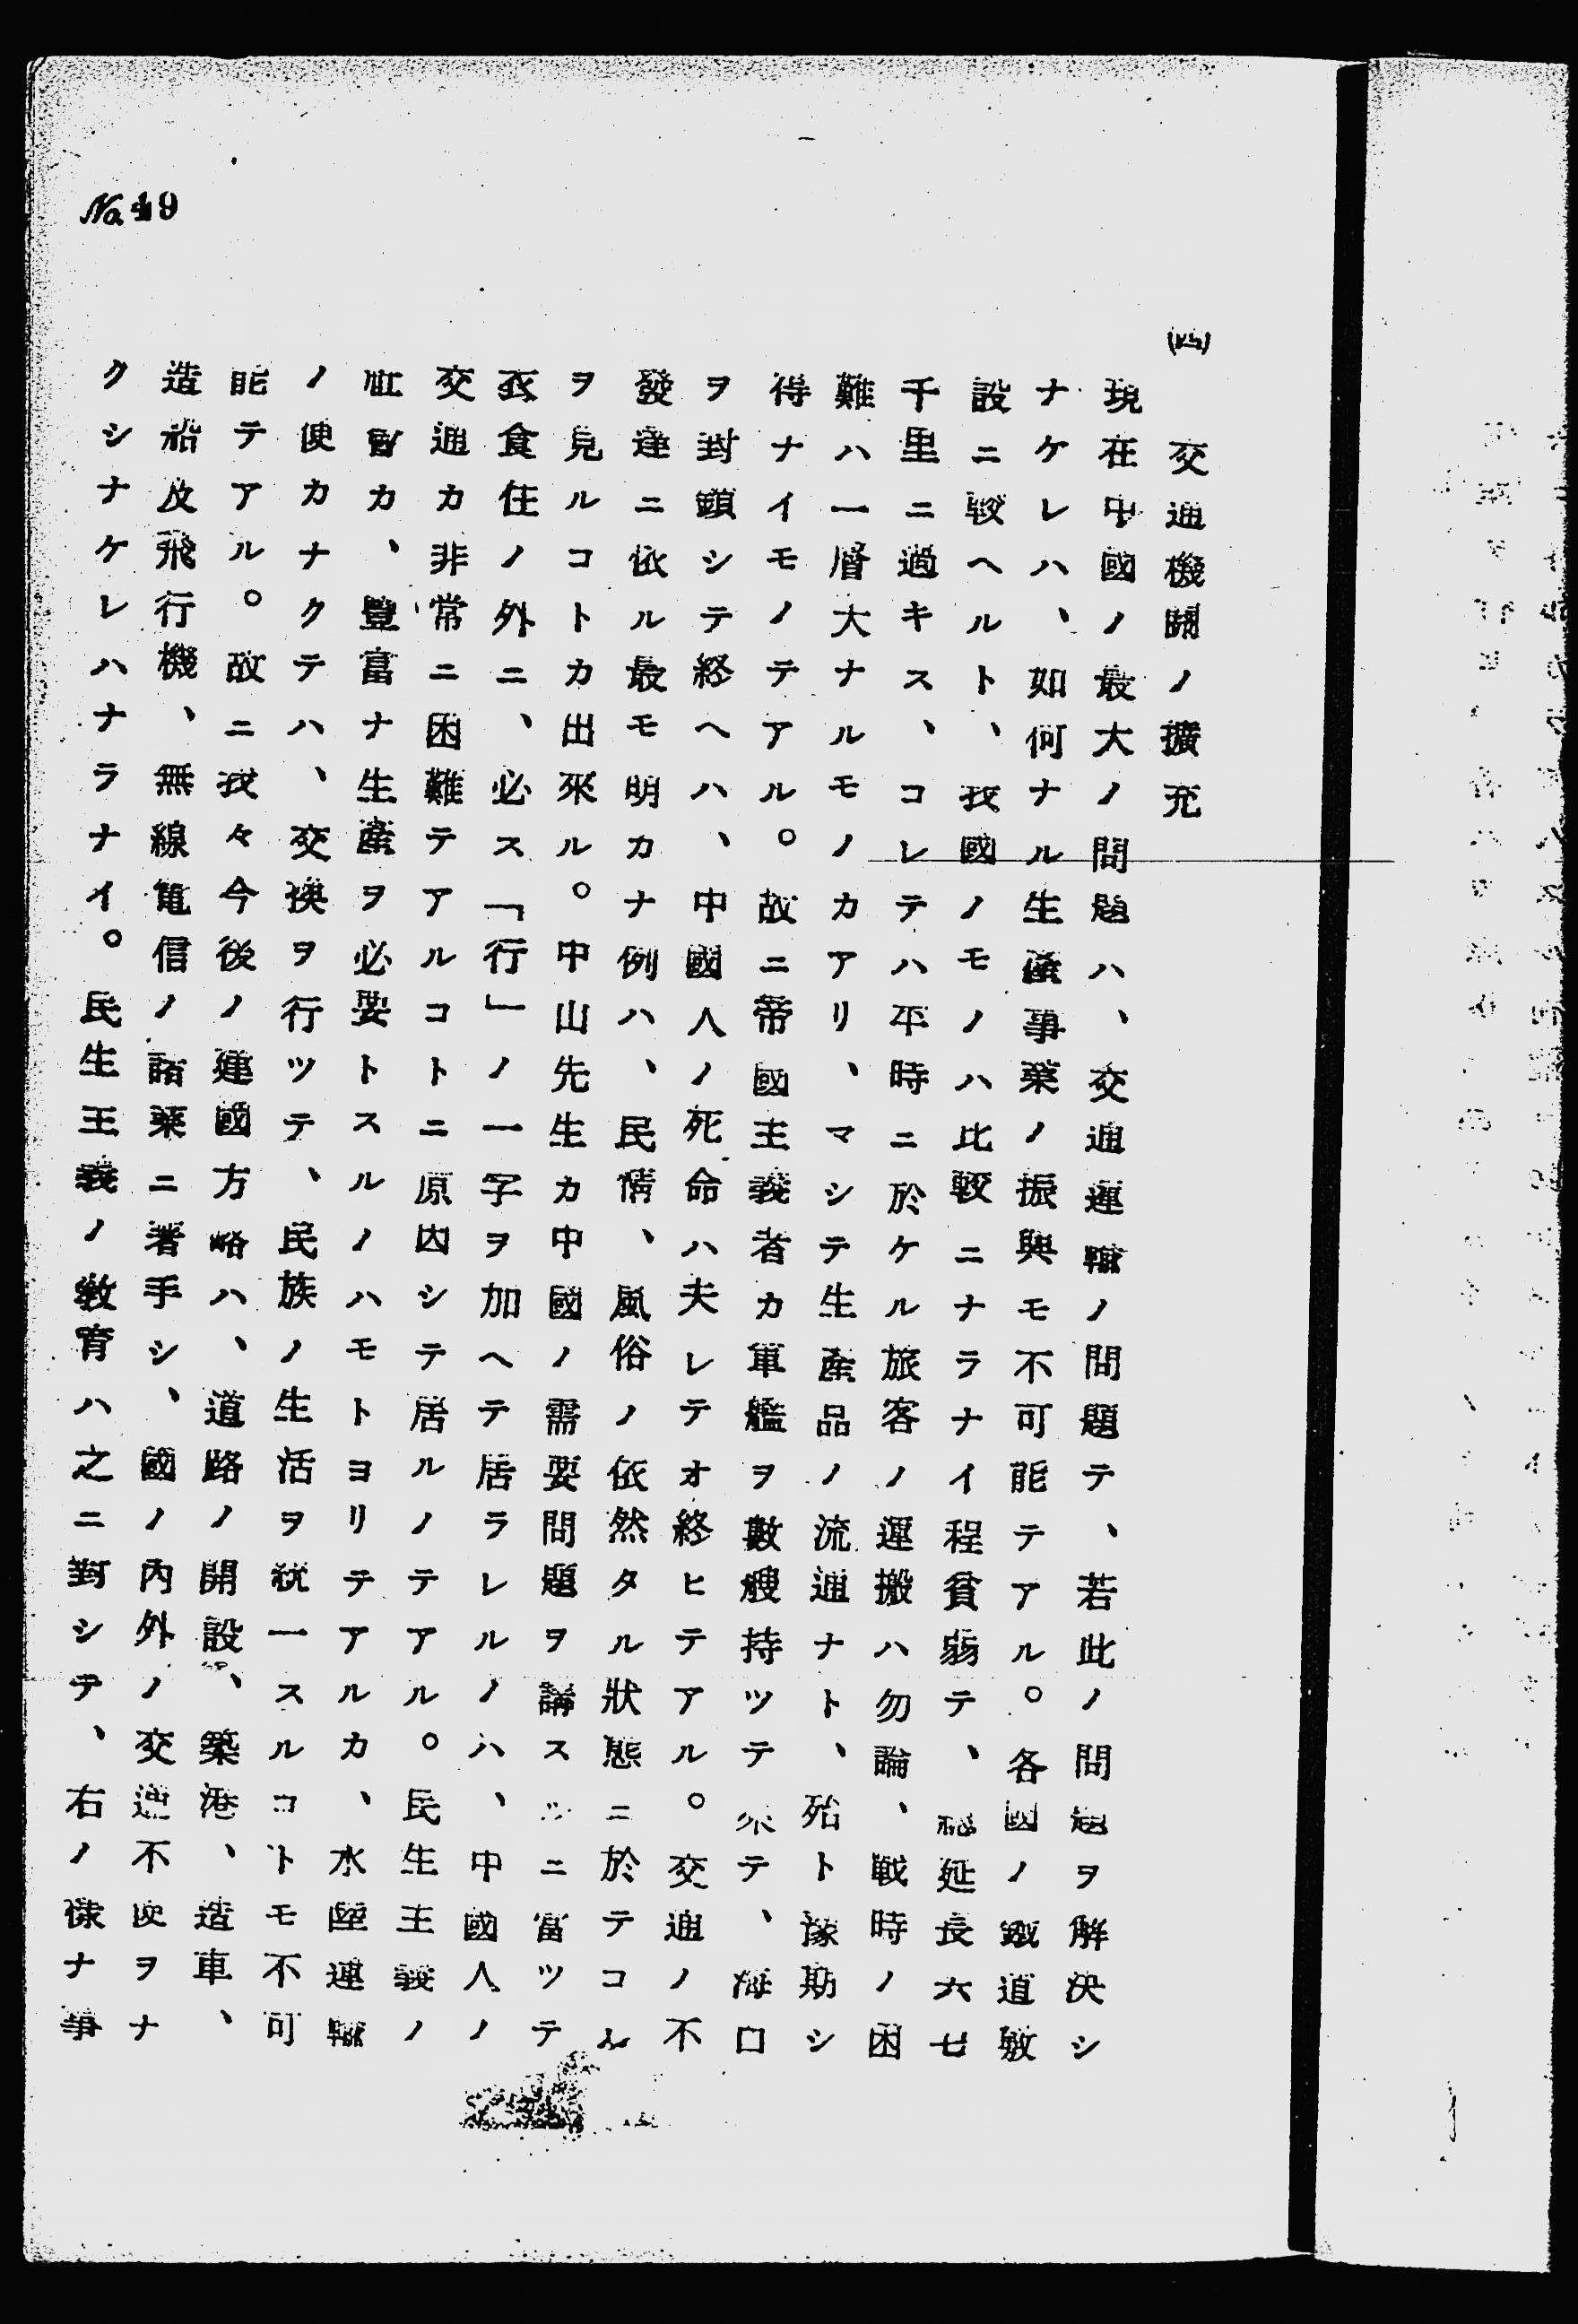 No.49
(四)
交通機關ノ擴充
現在中國ノ最大ノ問題ハ、交通運輸ノ問題テ、若此ノ問題ヲ解決シ
ナケレハ、如何ナル生產事業ノ振興モ不可能テアル。各國ノ鐵道敷
設ニ較ヘルト、我國ノモノハ比較ニナラナイ程貧弱テ、總延長六七
千里ニ過キス、コレテハ平時ニ於ケル旅客ノ運搬ハ勿論、戰時ノ困
難ハ一層大ナルモノカアリ、マシテ生產品ノ流通ナト、殆ト豫期シ
得ナイモノテアル。故ニ帝國主義者カ軍艦ヲ數艘持ツテ來テ、海口
ヲ封鎖シテ終ヘハ、中國人ノ死命ハ夫レテオ終ヒテアル。交通ノ不
發達ニ依ル最モ明カナ例ハ、民情、風俗ノ依然タル狀態ニ於テコレ
ヲ見ルコトカ出來ル。中山先生カ中國ノ需要問題ヲ講スルニ當ツテ
衣食住ノ外ニ、必ス「行」ノ一字ヲ加ヘテ居ラレルノハ、中國人ノ
交通カ非常ニ困難テアルコトニ原因シテ居ルノテアル。民生主義ノ
社會カ、豐富ナ生產ヲ必要トスルノハモトヨリテアルカ、水陸運輸
ノ便カナクテハ、交換ヲ行ツテ、民族ノ生活ヲ統一スルコトモ不可
能テアル。故ニ我々今後ノ建國方略ハ、道路ノ開設、築港、造車、
造船及飛行機、無線電信ノ諸業ニ著手シ、國ノ內外ノ交通不便ヲナ
クシナケレハナラナイ。民生主義ノ敎育ハ之ニ對シテ、右ノ樣ナ事